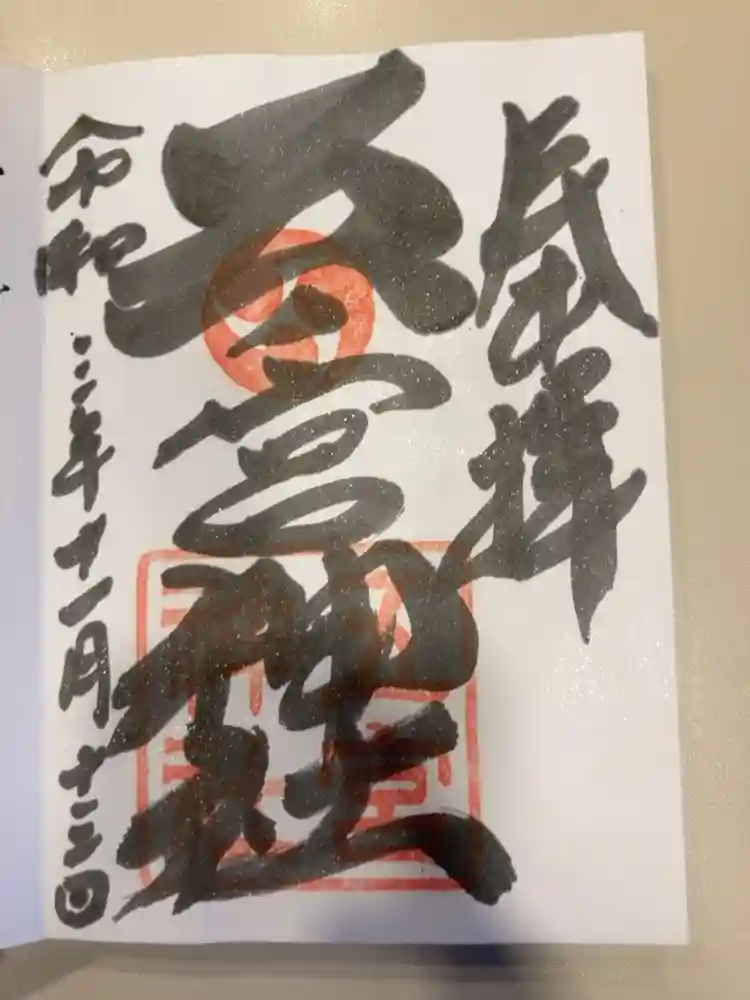 奉拝
五宮神社
令和三年十一月十二日